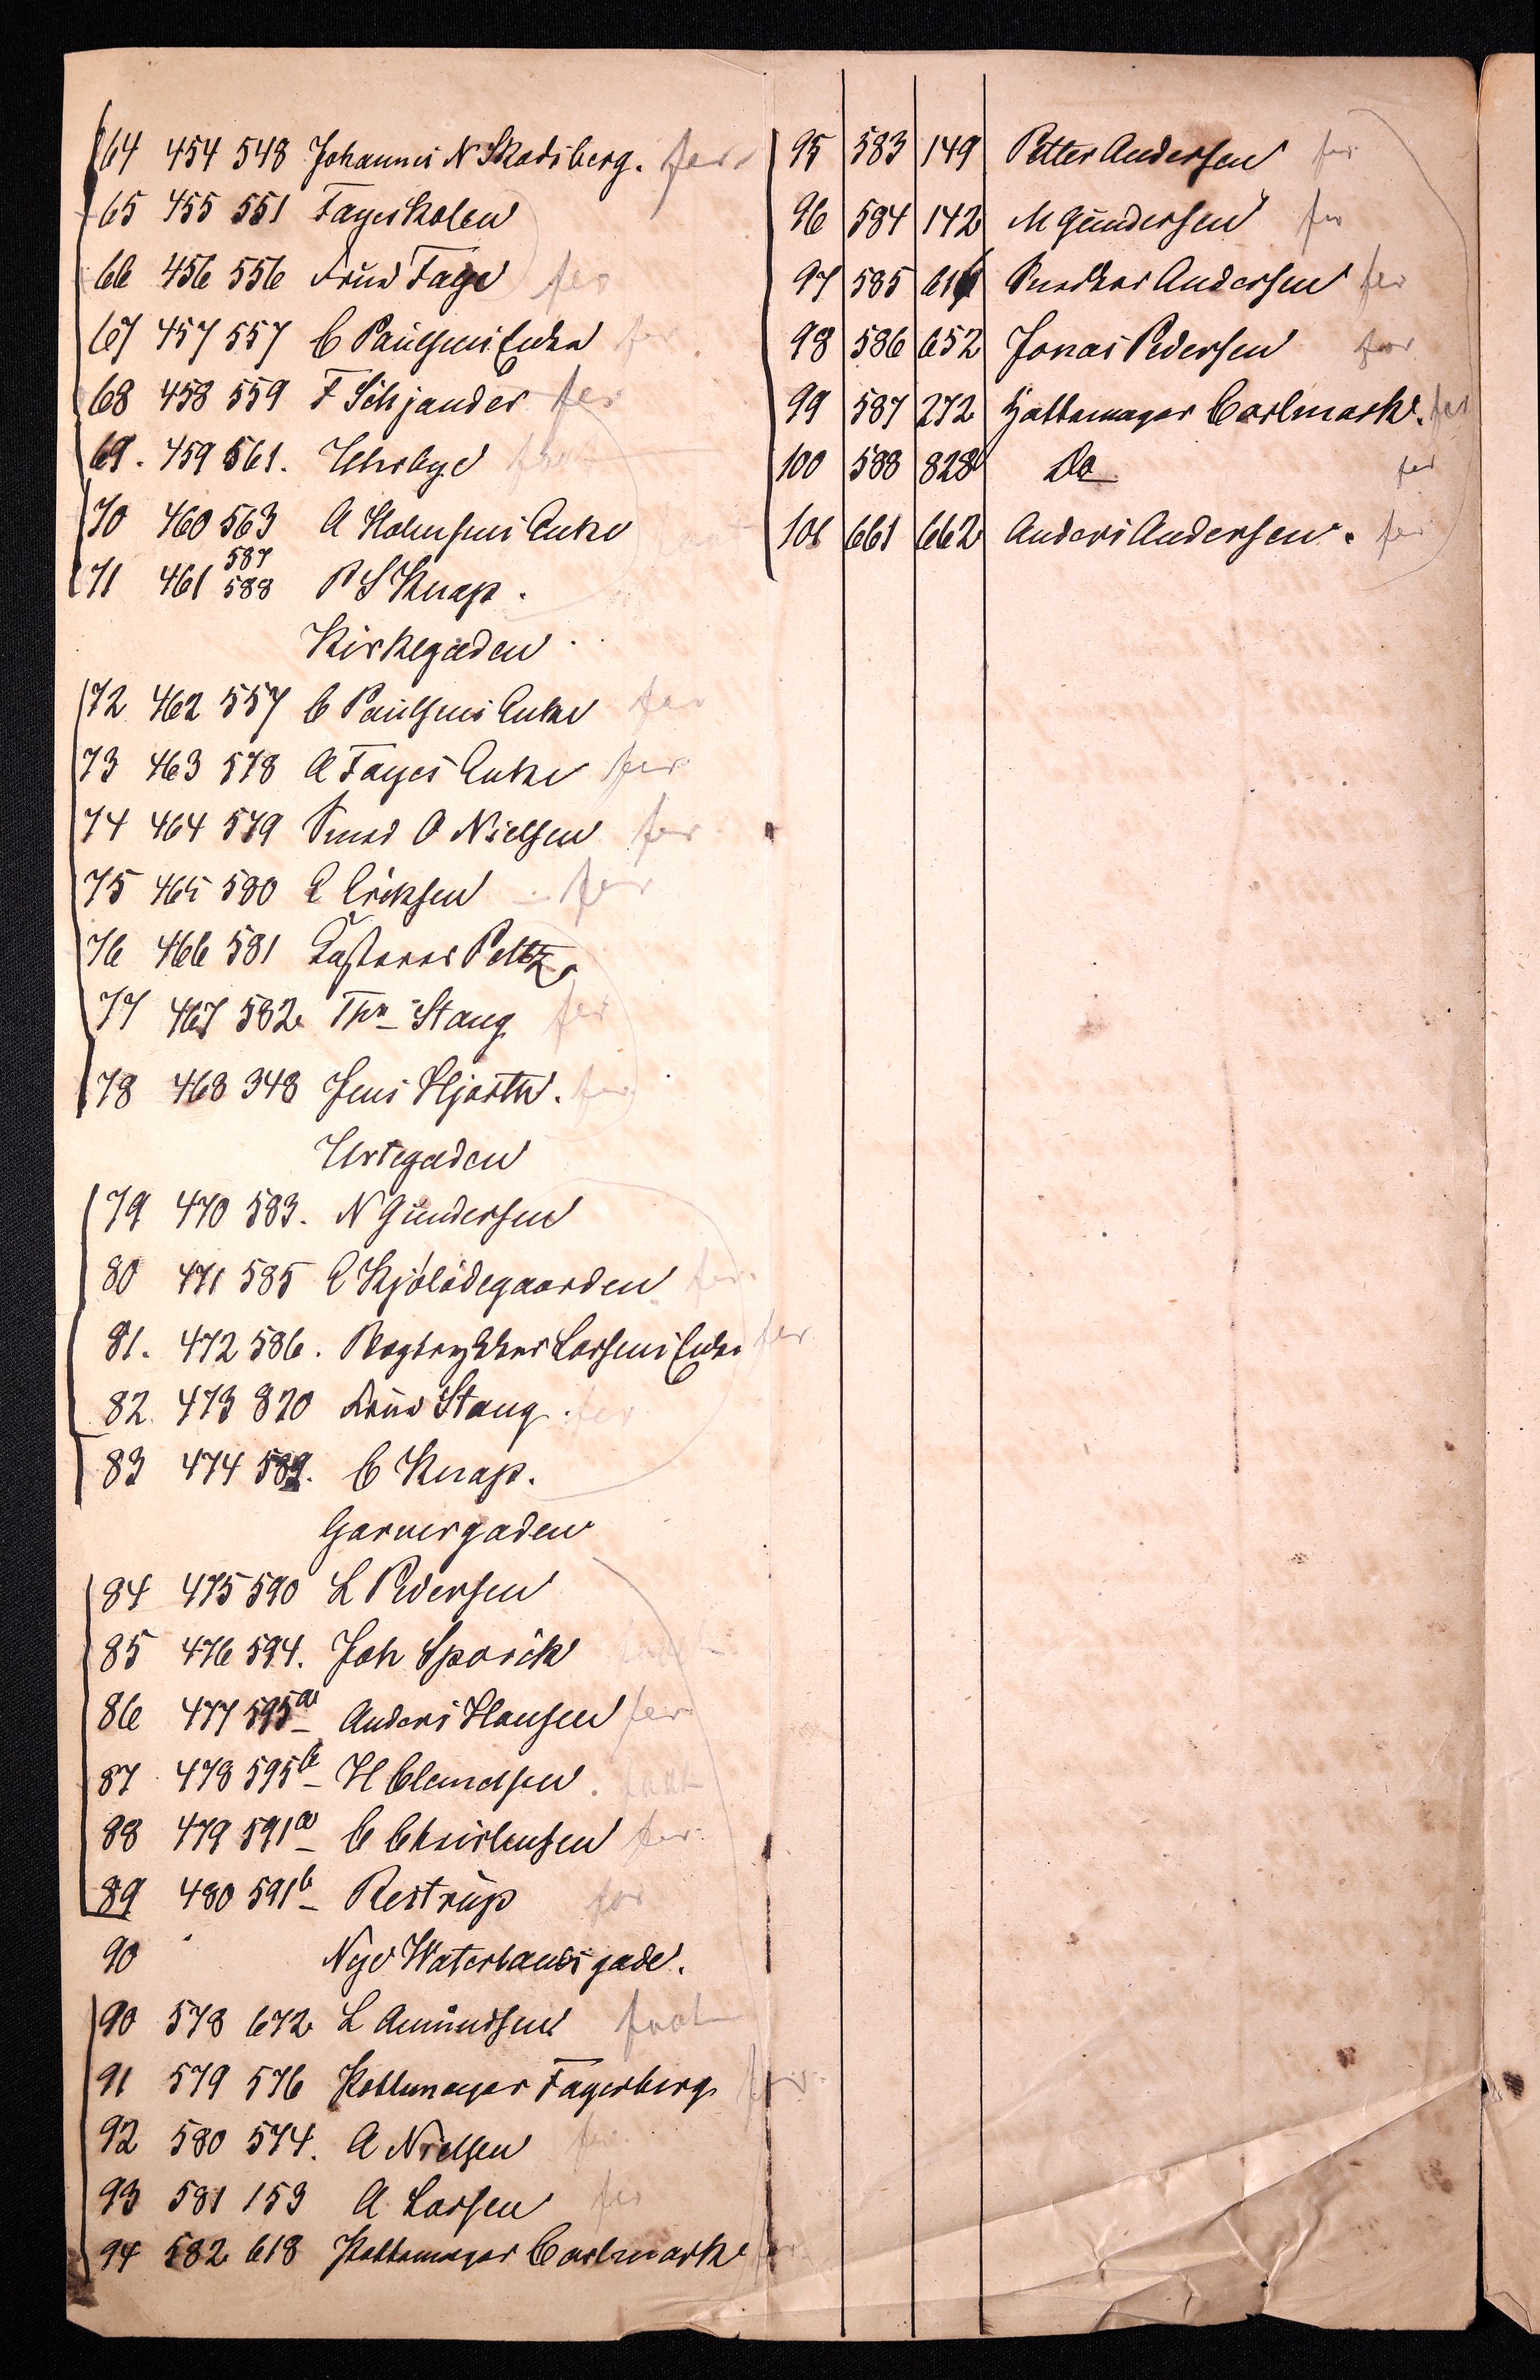 64 454 548 Johannes N Skodsberg. fer
65 455 551 Fayeskolen
66 456 556 Frue Faye fer
67 457 557 C Paulsens Enke fer
68 458 559 F Schjander fer
69. 459 561. Uhrbye
70 460 563 A Holmsens Enke
587
71 461 588 P S Knap.
Kirkegaden
72 462 557 C Paulsens Enke fer
73 463 578 A Fayes Enke fer
74 464 579 Smed O Nielsen fer
75 465 580 E Eriksen fer
76 466 581 Kasserer Peltz
77 467 582 Ths Stang fer
78 468 348 Jens Hjorth. fer
Urtegaden
79 470 583. N Gundersen
80 471 585 E Kjölödegaarden fer
81. 472 586. Bogtrykker Larsens Enke fer
82 473 820 Frue Stang. fer
83 474 589. C Knap.
Garvergaden
84 475 590 L Pedersen
85 476 594. Joh Sporck
86 477 595a Anders Hansen fer
87 478 595b H Clemetsen.
88 479 591a C Christensen fer
89 480 591b Restrup fer
90 Nye Waterlandsgade.
90 578 672 L Amundsen
91 579 576 Pottemager Fagerberg fer
92 580 574. A Nielsen fer
93 581 153 A Larsen fer
94 582 618 Pottemager Carlmark fer
95 583 149 Petter Andersen fer
96 584 142 M Gundersen fer
97 585 Snedker Andersen fer
98 586 652 Jonas Pedersen fer
99 587 272 Hattemager Carlmark. fer
100 588 828 Do fer
101 661 662 Anders Andersen. fer